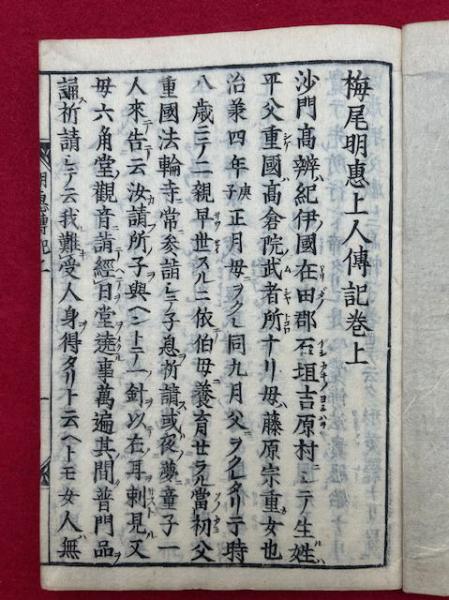 栂尾明惠上人傳記卷上
沙門高辨紀伊國在田郡石垣吉原村ニテ生姓
平父重國高倉院武者所ナリ母藤原宗重女也
治兼四年庚子正月母ヲクレ同九月父ヲクレタリ于時
八歳ニテ二親早世スルニ依伯母養育セラル當初父
重國法輪寺常参詣シテ子息祈請或夜夢童子一
人來告云汝請所子與ヘントテ一針以在耳刺見又
母六角堂觀音詣經日堂遶事萬遍其間普門品
誦祈請シテ云我難受人身得タリト云ヘトモ女人無
明惠傳記一